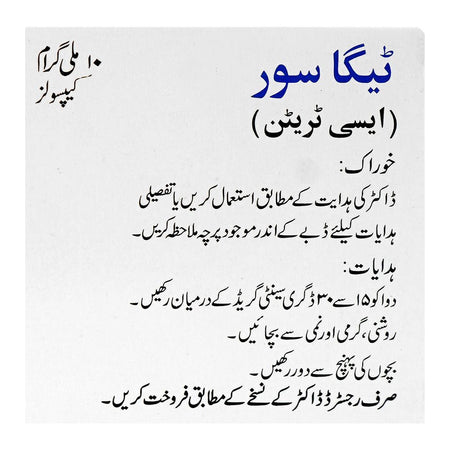 ٹیگا سور
۱۰ ملی گرام
کیپسولز
(ایسی ٹریٹن)
خوراک:
ڈاکٹر کی ہدایت کے مطابق استعمال کریں یا تفصیلی
ہدایات کیلئے ڈبے کے اندر موجود پرچہ ملاحظہ کریں۔
ہدایات:
دوا کو ۱۵ سے ۳۰ ڈگری سینٹی گریڈ کے درمیان رکھیں۔
روشنی، گرمی اور نمی سے بچائیں۔
بچوں کی پہنچ سے دور رکھیں۔
صرف رجسٹرڈ ڈاکٹر کے نسخے کے مطابق فروخت کریں۔